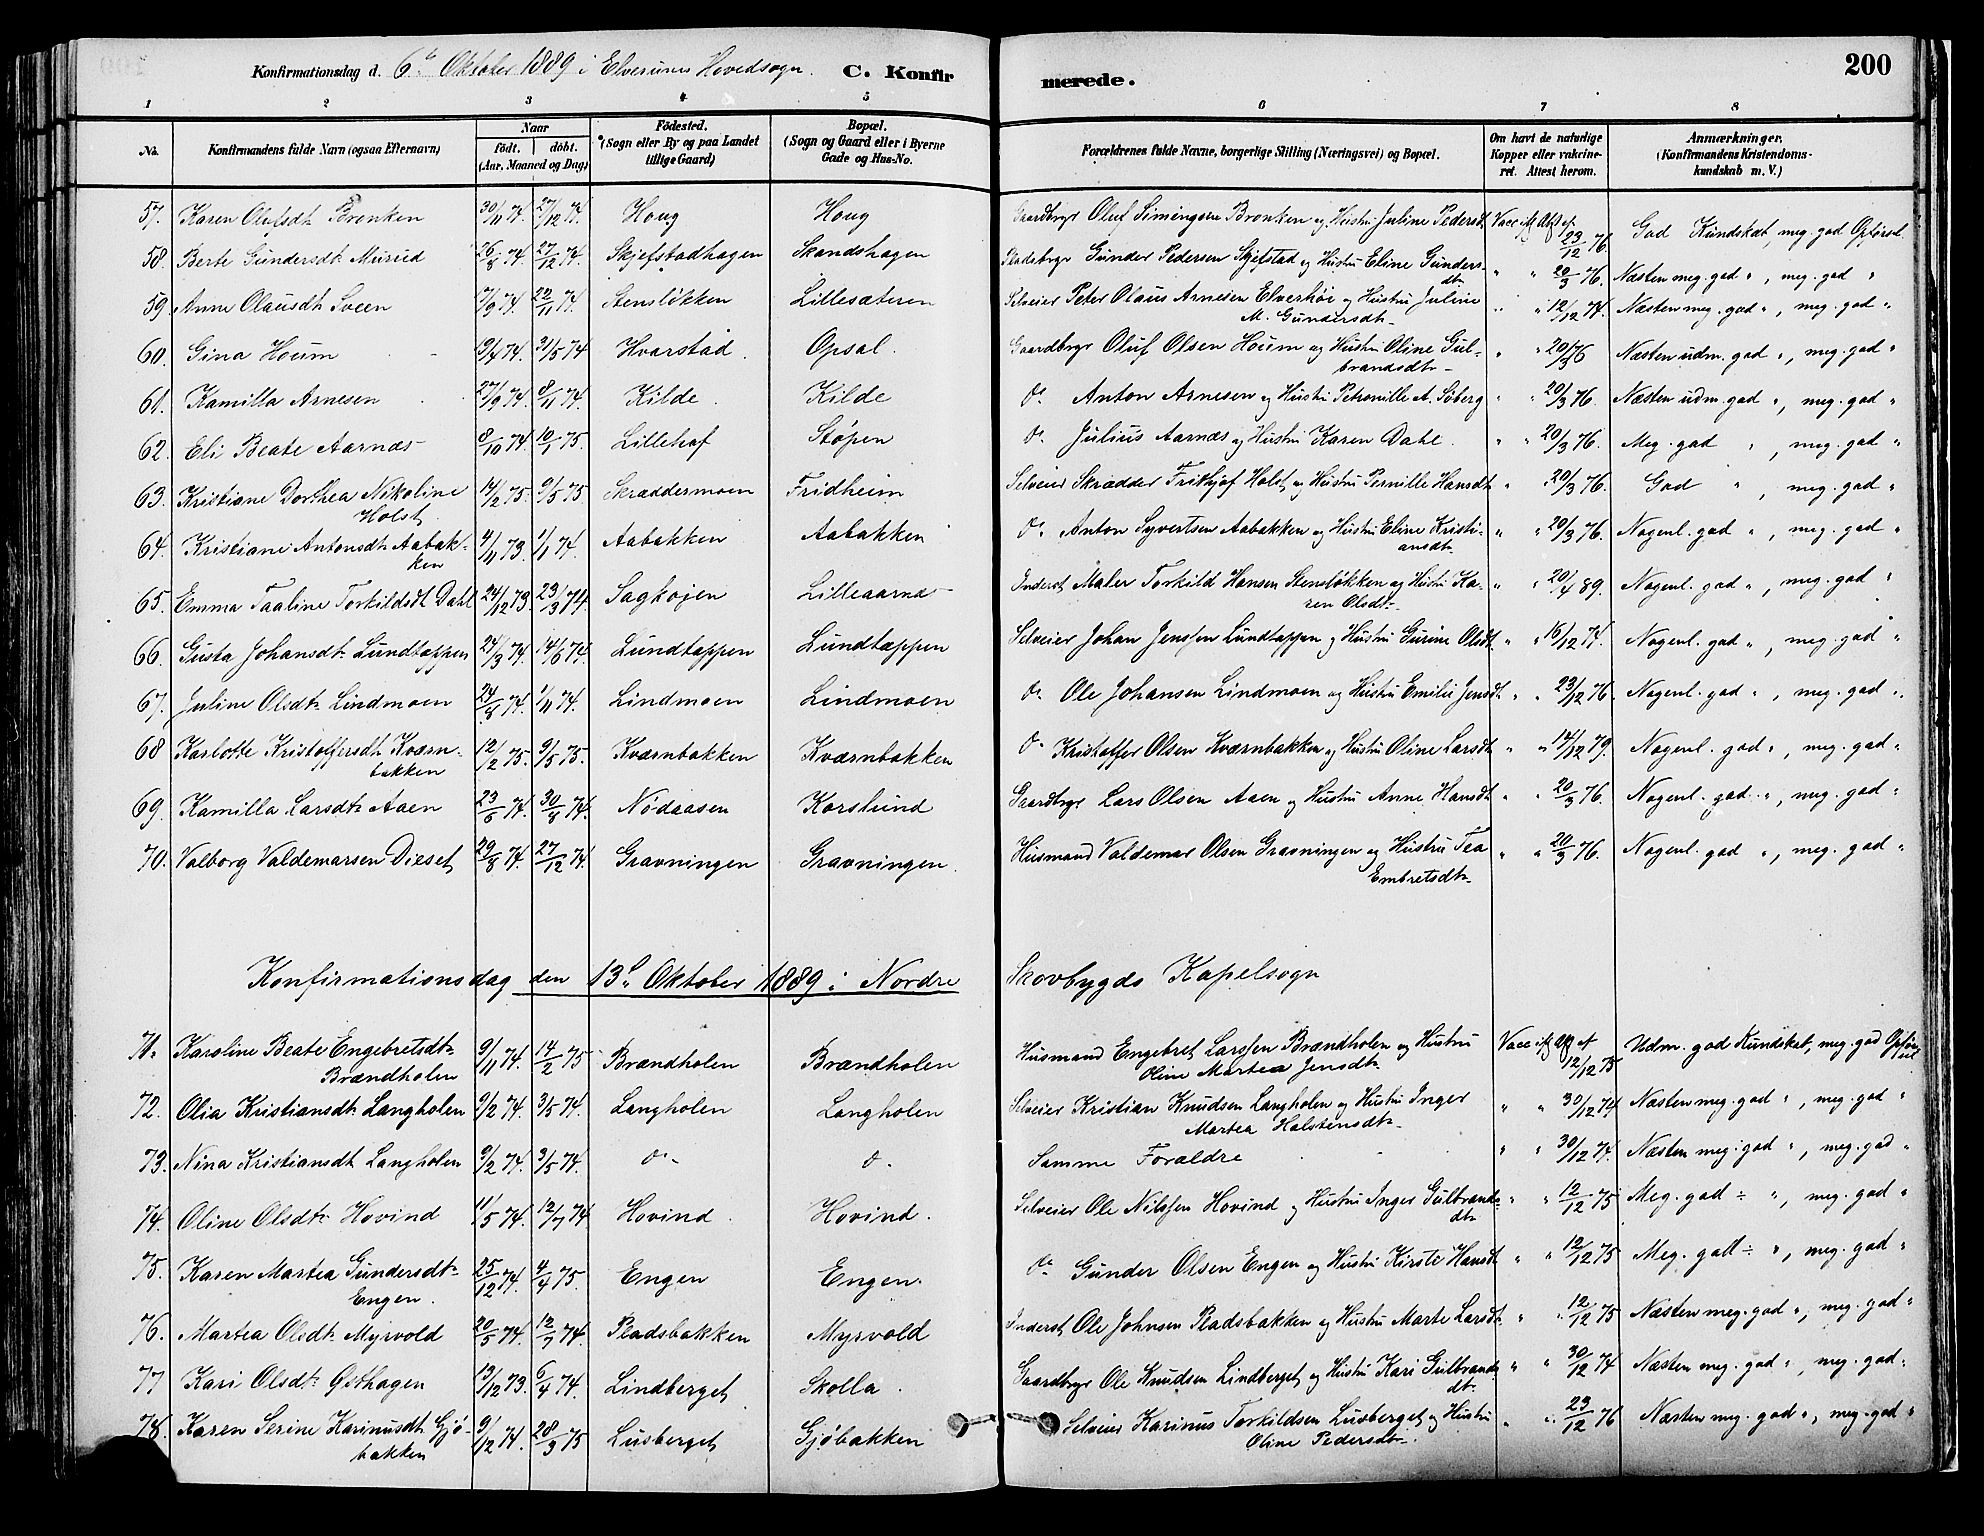 Konfirmationsdag d. 6te Oktober 1889 i Elverums Hovedsogn. C. Konfirmerede. 200
1 2 3 4 5 6 7 8
No. Konfirmandens fulde Navn (ogsaa Efternavn) Naar födt. döbt. (Aar, Maaned og Dag) Födested. (Sogn eller By og paa Landet tillige Gaard) Bopæl. (Sogn og Gaard eller i Byerne Gade og Hus-No. Forældrenes fulde Navne, borgerlige Stilling (Næringsvei) og Bopæl. Om havt de naturlige Kopper eller vakcineret. Attest herom. Anmærkninger. (Konfirmandens Kristendomskundskab m. V.)
57. Karen Olufsdt. Bronken 30/11 74. 27/12 74. Houg Houg Gaardbrgr Oluf Simingsen Bronken og Hustru Juline Pedersdt Vacc. 23/12 76. God Kundskab, meg. god Opførsel
58. Berte Gundersdt. Musud 26/8 74. 27/12 74. Skjefstadhagen Skandshagen Pladsbrgr Gunder Pedersen Skjefstad og Hustru Eline Gundersdt " " 20/3 76. Næsten meg. god ", meg. god "
59. Anne Olausdt. Sveen 7/9 74. 22/11 74. Stensløkken Lillesæteren Selveier Peter Olaus Arnesen Elverhøi og Hustru Juline M. Gundersdt. " " 12/12 74. Næsten meg. god ", meg. god "
60. Gina Houm 9/4 74. 31/5 74 Hvarstad. Opsal. Gaardbrgr Oluf Olsen Houm og Hustru Oline Gulbrandsdt. " " 20/3 76 Næsten udm. god ", meg. god "
61. Kamilla Arnesen 27/9 74. 8/11 74. Kilde. Kilde do. Anton Arnesen og Hustru Petronille A. Söberg " " 20/3 76. Næsten udm. god ", meg. god "
62. Eli Beate Aarnæs 8/10 74. 10/1 75. Lillehof Støpen do. Julius Aarnæs og Hustru Karen Dahl. " " 20/3 76. Meg. god ", meg. god "
63. Kristiane Dorthea Nikoline Holst 14/2 75. 9/5 75. Skræddermoen Fridheim Selveier Skrædder Frithjof Holst og Hustru Pernille Hansdt " 20/3 76. God ", meg. god "
64. Kristiane Antonsdt. Aabakken 9/11 73. 1/1 74. Aabakken Aabakken do. Anton Syvertsen Aabakken og Hustru Eline Kristiansdt. " " 20/3 76. Nogenl. god ", meg. god "
65. Emma Taaline Torkildsdt Dahl 24/12 73. 23/3 74. Sagkojen Lilleaarnæs Inderst, Maler Torkild Hansen Stensløkken og Hustru Karen Olsdt. " " 20/4 89. Nogenl. god ", meg. god "
66. Gusta Johansdt. Lundtappen 24/3 74. 14/6 74. Lundtappen Lundtappen Selveier Johan Jenssen Lundtappen og Hustru Gurine Olsdt. " " 16/12 74. Nogenl. god ", meg. god "
67. Juline Olsdt. Lindmoen 24/8 74. 1/11 74. Lindmoen Lindmoen do. Ole Johansen Lindmoen og Hustru Emilie Jensdt " " 23/12 76. Nogenl. god ", meg. god "
68 Karlotte Kristoffersdt. Kværnbakken 12/2 75. 9/5 75. Kværnbakken Kværnbakken do. Kristoffer Olsen Kværnbakken og Hustru Oline Larsdt " " 14/12 79. Nogenl. god ", meg. god "
69. Kamilla Larsdt. Aaen 23/6 74. 30/8 74. Nödaasen Korslund Gaardbrgr Lars Olsen Aaen og Hustru Anne Hansdt " " 20/3 76. Nogenl. god ", meg. god "
70. Valborg Valdemarsen Dieset 29/8 74. 27/12 74. Gravningen Gravningen. Husmand Valdemar Olsen Gravningen og Hustru Tea Embretsdt. " " 20/3 76. Nogenl. god ", meg. god "
Konfirmationsdag den 13de Oktober 1889 i Nordre Skovbygds Kapelsogn
71. Karoline Beate Engebretsdt. Brændholen 9/11 74. 14/2 75 Brændholen Brændholen Husmand Engebret Larssen Brændholen og Hustru Oline Martea Jensdt. Vacc. 12/12 75 Udm. god Kundskab, meg. god Opførsel
72. Olia Kristiansdt. Langholen 9/2 74. 3/5 74. Langholen Langholen Selveier Kristian Knudsen Langholen og Hustru Inger Martea Halstensdt. " " 30/12 74 Næsten meg. god ", meg. god "
73. Nina Kristiansdt Langholen 9/2 74. 3/5 74. do. do. Samme Forældre " " 30/12 74. Næsten meg. god ", meg. god "
74. Oline Olsdt. Hovind 11/5 74. 12/7 74 Hovind. Hovind. Selveier Ole Nilssen Hovind og Hustru Inger Gulbrandsdt. " " 12/12 75 Meg. god ÷ ", meg. god "
75. Karen Martea Gundersdt. Engen. 25/12 74. 4/4 75. Engen Engen. do. Gunder Olsen Engen og Hustru Kirsti Hansdt " " 12/12 75 Meg. godt ÷ ", meg. god "
76. Martea Olsdt. Myrvold 20/5 74. 12/7 74. Pladsbakken Myrvold Inderst, Ole Johnsen Pladsbakken og Hustru Marte Larsdt. " " 12/12 75 Næsten meg. god ", meg. god "
77 Kari Olsdt. Østhagen 13/12 73. 6/4 74. Lindberget Skolla. Gaardbrgr Ole Knudsen Lindberget og Hustru Kari Gulbrandsdt. " " 30/12 74 Næsten meg. god ", meg. god "
78. Karen Serine Karinusdt. Gjøbakken 9/12 74. 28/3 75 Lusberget Gjöbakken Selveier Karinus Torkildsen Lusberget og Hustru Oline Pedersdt. " " 23/12 76 Næsten meg. god ", meg. god "